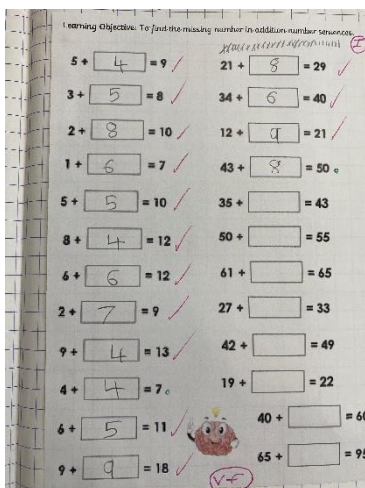 Learning Objective: To find the missing number in addition number sentences.
5 + 4 = 9
3 + 5 = 8
2 + 8 = 10
1 + 6 = 7
5 + 5 = 10
8 + 4 = 12
6 + 6 = 12
2 + 7 = 9
9 + 4 = 13
4 + 4 = 7
6 + 5 = 11
9 + 9 = 18
I
21 + 8 = 29
34 + 6 = 40
12 + 9 = 21
43 + 8 = 50
35 + = 43
50 + = 55
61 + = 65
27 + = 33
42 + = 49
19 + = 22
40 + = 60
65 + = 95
VF